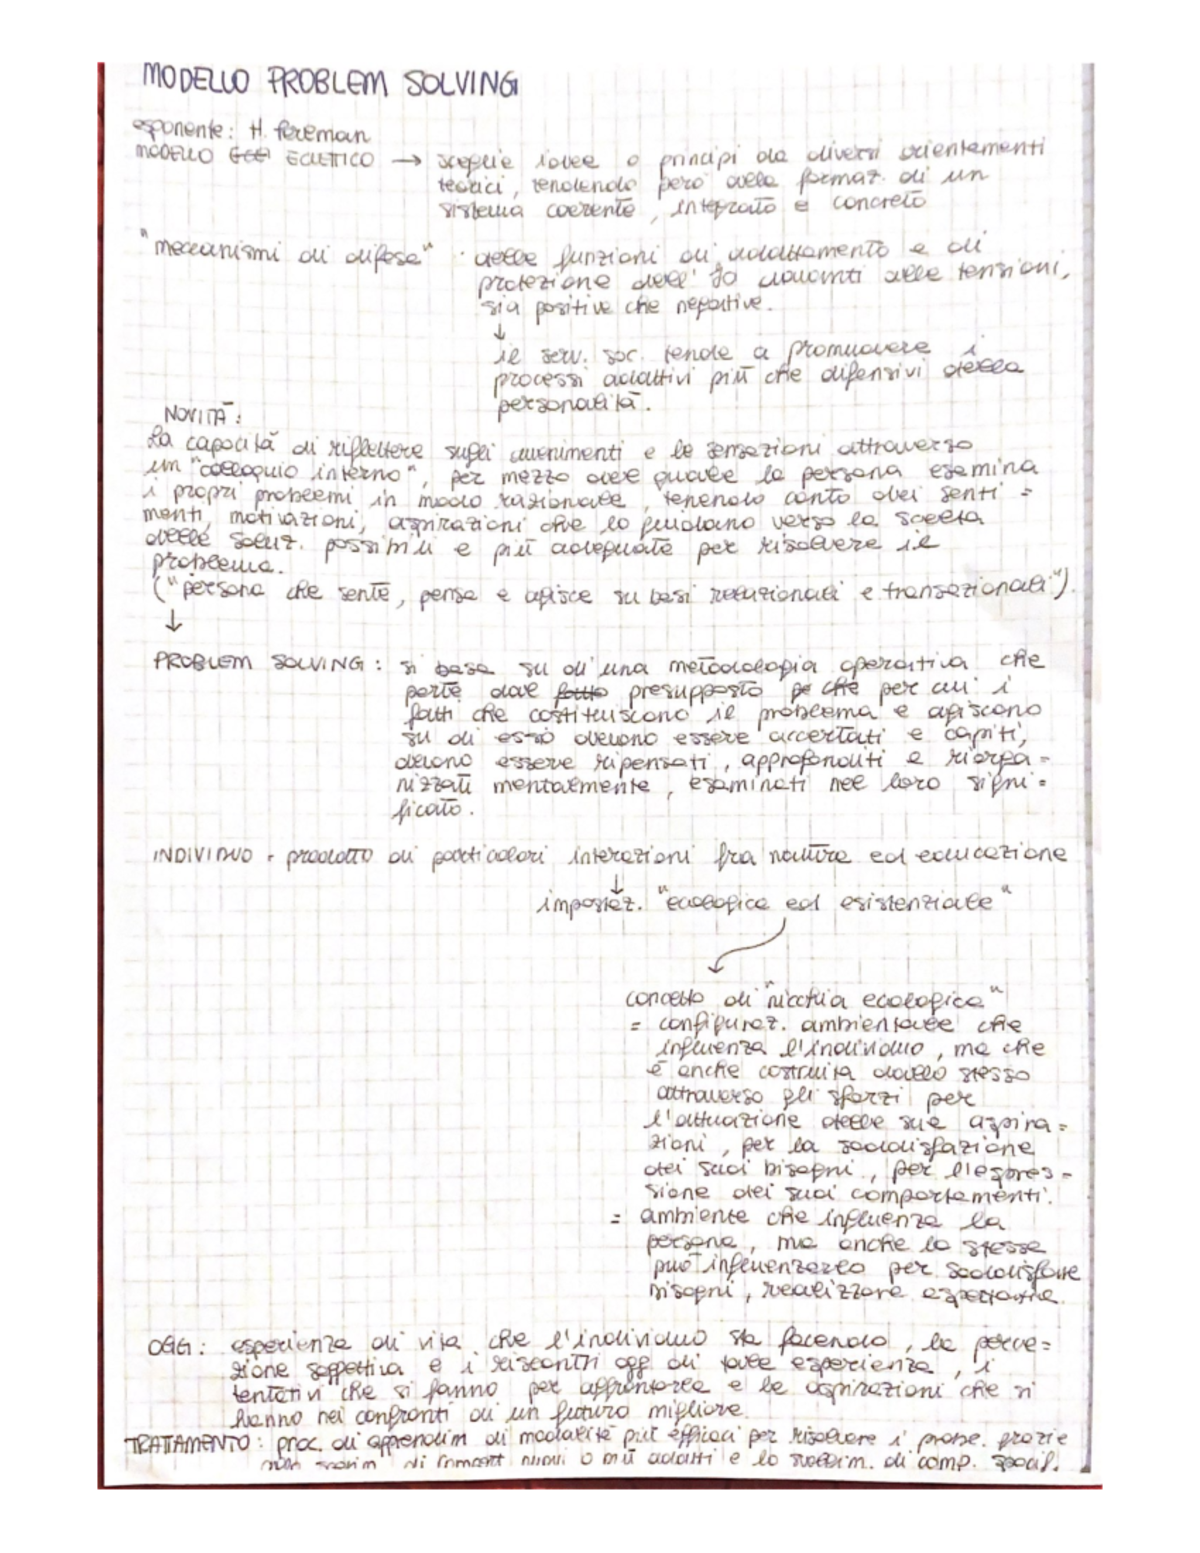 MODELLO PROBLEM SOLVING
esponente: H. Pereman
MODELLO ECLETTICO → sceglie idee o principi da diversi orientamenti
teorici, tendendo però alla formaz. di un
sistema coerente, integrato e concreto
"meccanismi di difesa": delle funzioni di adattamento e di
protezione dell'Io davanti alle tensioni,
sia positive che negative.
↓
il serv. soc. tende a promuovere i
processi adattivi più che difensivi della
personalità.
NOVITÀ:
La capacità di riflettere sugli avvenimenti e le sensazioni attraverso
un "colloquio interno", per mezzo del quale la persona esamina
i propri problemi in modo razionale, tenendo conto dei senti=
menti, motivazioni, aspirazioni che lo guidano verso la scelta
delle soluz. possibili e più adeguate per risolvere il
problema.
("persona che sente, pensa e agisce su basi relazionali e transazionali").
↓
PROBLEM SOLVING: si basa su di una metodologia operativa che
parte dal fatto presupposto pe che per cui i
fatti che costituiscono il problema e agiscono
su di esso devono essere accertati e capiti,
devono essere ripensati, approfonditi e riorga=
nizzati mentalmente, esaminati nel loro signi=
ficato.
INDIVIDUO = prodotto di particolari interazioni fra natura ed educazione
↓
impostaz. "ecologica ed esistenziale"
concetto di "nicchia ecologica"
= configuraz. ambientale che
influenza l'individuo, ma che
è anche costruita dallo stesso
attraverso gli sforzi per
l'attuazione delle sue aspira=
zioni, per la soddisfazione
dei suoi bisogni, per l'espres=
sione dei suoi comportamenti.
= ambiente che influenza la
persona, ma anche la stessa
può influenzarlo per soddisfare
bisogni, realizzare aspettative.
OGG: esperienza di vita che l'individuo sta facendo, la perce=
zione soggettiva e i riscontri ogg. di tale esperienza, i
tentativi che si fanno per affrontarla e le aspirazioni che si
hanno nei confronti di un futuro migliore.
TRATTAMENTO: proc. di apprendim. di modalità più efficaci per risolvere i probl. grazie
di nuovi o più adatti e lo di comp. specif.